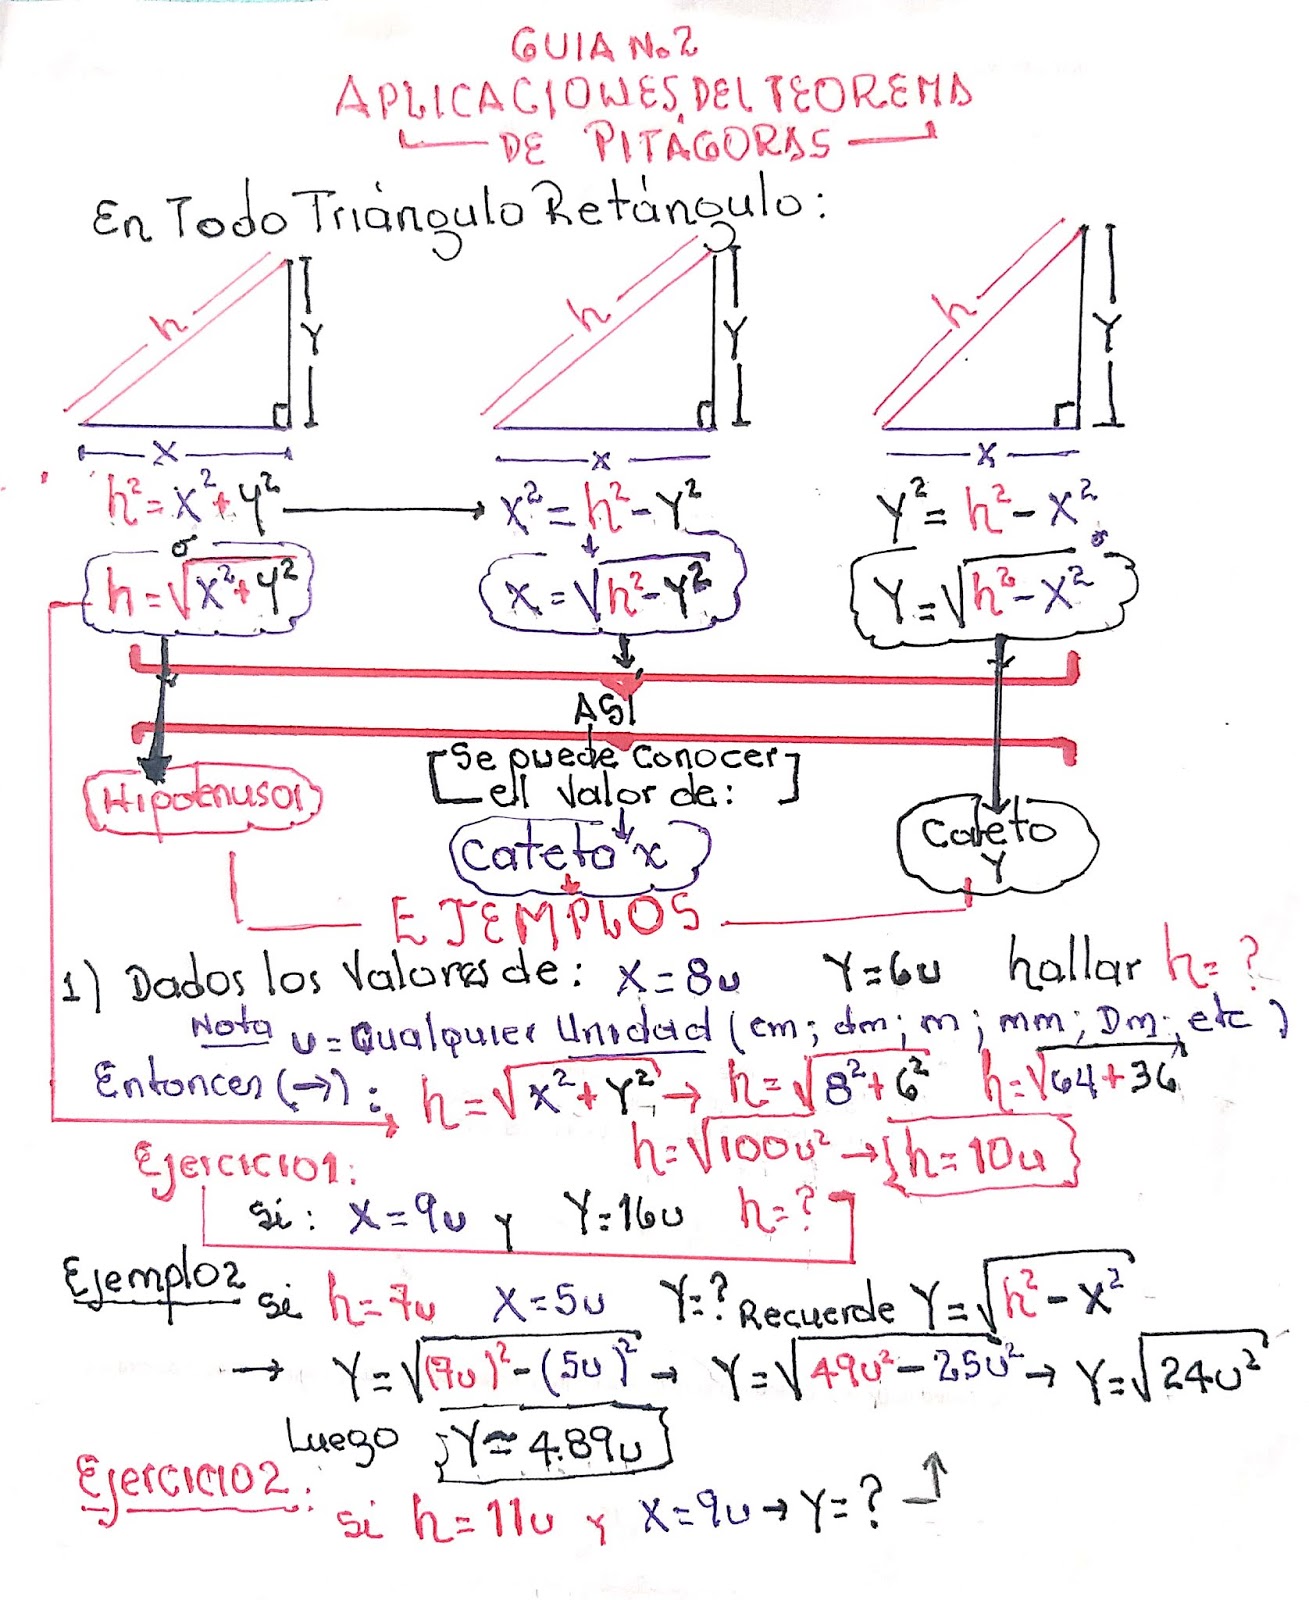 GUIA No.2
APLICACIONES DEL TEOREMA
DE PITÁGORAS
En Todo Triángulo Retángulo:
h Y h Y h Y
X X X
h² = X² + Y² → X² = h² - Y² Y² = h² - X²
o o
h = √X² + Y² X = √h² - Y² Y = √h² - X²
ASÍ
Se puede conocer
el valor de:
Hipotenusa Cateto x Cateto Y
EJEMPLOS
1) Dados los Valores de: X = 8u Y = 6u hallar h = ?
Nota u = Cualquier Unidad (cm; dm; m; mm; Dm; etc)
Entonces (→): h = √X² + Y² → h = √8² + 6² h = √64 + 36
h = √100u² → h = 10u
Ejercicio 1:
Si: X = 9u y Y = 16u h = ?
Ejemplo 2 si h = 7u X = 5u Y = ? Recuerde Y = √h² - X²
→ Y = √(7u)² - (5u)² → Y = √49u² - 25u² → Y = √24u²
Luego Y ≈ 4.89u
Ejercicio 2:
si h = 11u y X = 9u → Y = ?